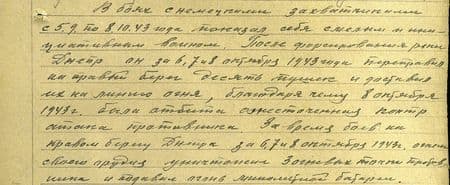 В боях с немецкими захватчиками
с 5.9. по 8.10.43 года показал себя смелым и ини-
циативным воином. После форсирования реки
Днепр он за 6,7 и 8 октября 1943 года переправил
на правый берег десять пушек и доставил
их на линию огня, благодаря чему 8 октября
1943г. была отбита ожесточенная контр
атака противника. За время боев на
правом берегу Днепра за 6,7 и 8 октября 1943г. огнем
своего орудия уничтожил 3 огневых точки против
ника и подавил огонь минометной батареи.